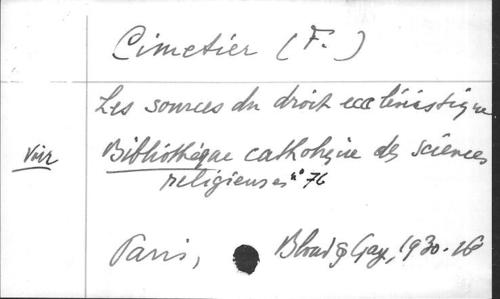 Cimetier (F.)
Les sources du droit ecclésiastique
Voir
Bibliothèque catholique des sciences
religieuses n° 76
Paris, Bloud & Gay, 1930-16°